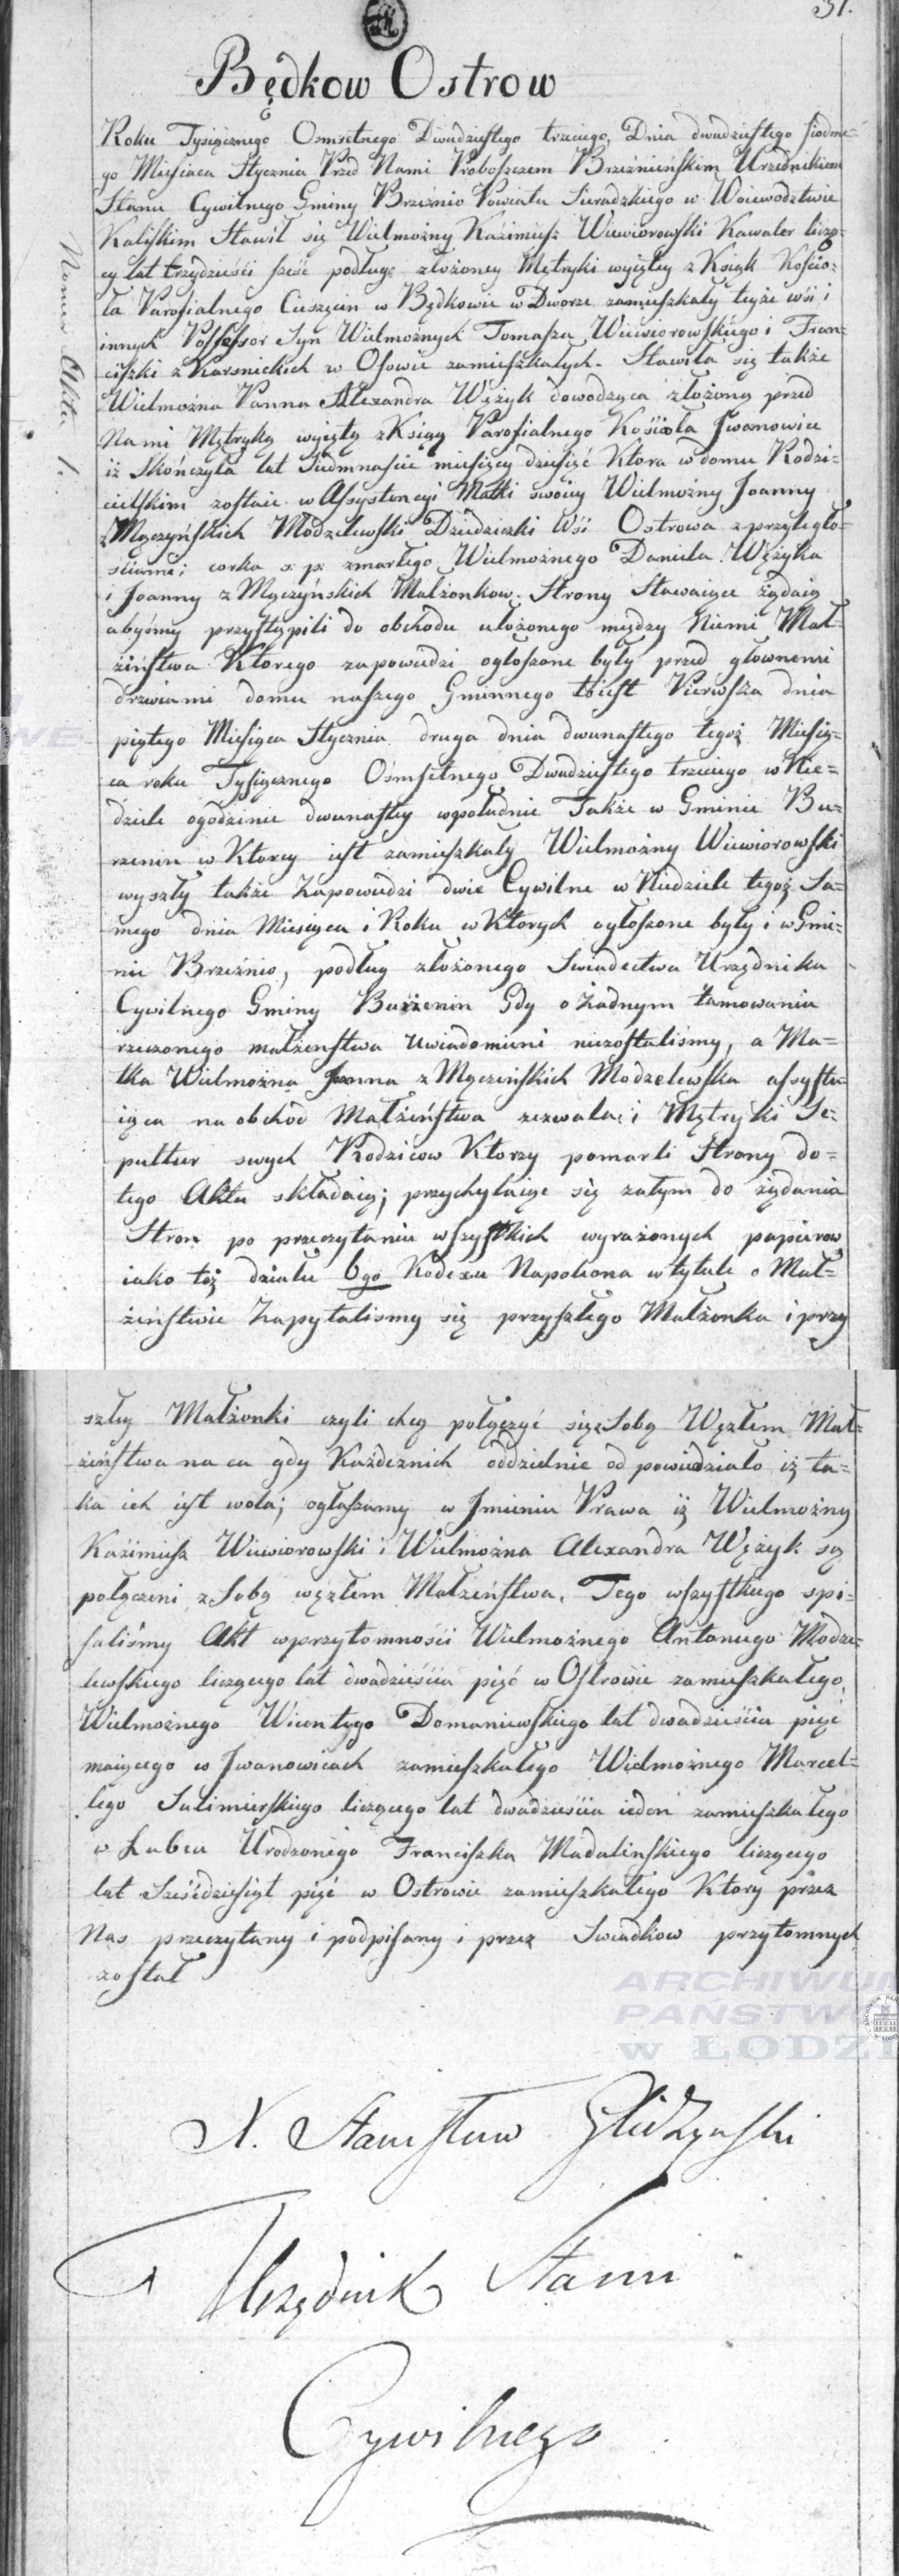 31.
Będkow Ostrow
Numer Aktu 1.
Roku Tysiącznego Osmsetnego Dwudziestego trzeciego, Dnia dwudziestego siodme-
go Miesiaca Stycznia Przed Nami Proboszczem Brzezninskim Urzednikiem
Stanu Cywilnego Gminy Brzeźnio Powiatu Sieradzkiego w Woiewodztwie
Kaliskim Stawił się Wielmożny Kaźimiesz Wiewiorowski Kawaler liczą-
cy lat trzydzieści sześc podług złożoney Mętryki wyiętey z Ksiąk Kościo-
ła Parafialnego w Będkowie w Dworze zamieszkały teyże wśi i
innych Possessor Syn Wielmożnych Tomasza Wiewiorowskiego i Fran-
ciszki z Karsnickich w Osowie zamieszkałych. Stawiła się także
Wielmożna Panna Alexandra Wężyk dowodząca złożoną przed
Nami Mętryką wyiętą z Księg Parafialnego Kośioła Jwanowic
iż Skończyła lat Siedmnascie miesięcy dziesięć Ktora w domu Rodzi-
cielskim zostaie w Assystencyi Matki swoiey Wielmożny Joanny
z Męczyńskich Modzelewski Dziedziczki Wśi Ostrowa z przyległo-
sciami; corka s: p: zmarłego Wielmożnego Daniela Wężyka
i Joanny z Męczyńskich Małżonkow. Strony Stawaiące żądaią
abyśmy przystąpili do obchodu ułożonego między Niemi Mał-
żeństwa Ktorego zapowiedzi ogłoszone były przed głownemi
drzwiami domu naszego Gminnego toiest Pierwsza dnia
piątego Miesiąca Stycznia druga dnia dwunastego tegoż Miesią-
ca roku Tysiącznego Ośmsetnego Dwudziestego trzeciego w Nie-
dziele ogodzinie dwunastey wpołudnie Także w Gminie Bu-
rzenin w Ktorey iest zamieszkały Wielmożny Wiewiorowski
wyszły także Zapowiedzi dwie Cywilne w Niedziele tegoż Sa-
mego dnia Miesiąca i Roku w Ktorych ogłoszone były i w Gmi-
nie Brzeźnio, podług złożonego Swiadectwa Urzędnika
Cywilnego Gminy Burzenin Gdy o Żadnym tamowaniu
rzeczonego małżenstwa Uwiadomieni niezostaliśmy, a Ma-
tka Wielmożna Joanna z Męczeńskich Modzelewska assystu-
iąca na obchód Małżeństwa zezwala; i Mętryki Se-
pultur swych Rodzicow Ktorzy pomarli Strony do-
tego Aktu składaią; przychylaiąc się zatym do żądania
Stron po przeczytaniu wszystkich wyrażonych papierow
iako też działu 6go Kodexu Napoleona w tytule o Mał-
żeństwie Zapytalismy się przyszłego Małżonka i przy
szłey Małżonki czyli chcą połączyć się z Sobą Węzłem Mał-
żeństwa na ca gdy Każdeznich oddzielnie odpowiedziało iż ta-
ka ich iest wola; ogłaszamy w Jmieniu Prawa iż Wielmożny
Kaźimiesz Wiewiorowski i Wielmożna Alexandra Wężyk są
połączeni z Sobą węzłem Małżeństwa. Tego wszystkiego spi-
saliśmy Akt wprzytomności Wielmożnego Antoniego Modze-
lewskiego liczącego lat dwadzieścia pięć w Ostrowie zamieszkałego,
Wielmożnego Wicentego Domaniewskiego lat dwadzieścia pięć
maiącego w Jwanowicach zamieszkałego Wielmożnego Marcel-
lego Sulimierskiego liczącego lat dwadzieścia ieden zamieszkałego
w Łubca Urodzonego Franciszka Madalinskiego liczącego
lat Sześćdziesiąt pięć w Ostrowie zamieszkałego Ktory przez
Nas przeczytany i podpisany i przez Swiadkow przytomnych
został
X. Stanisław
Urzędnik Stanu
Cywilnego
ARCHIWUM
PAŃSTWOWE
w ŁODZI